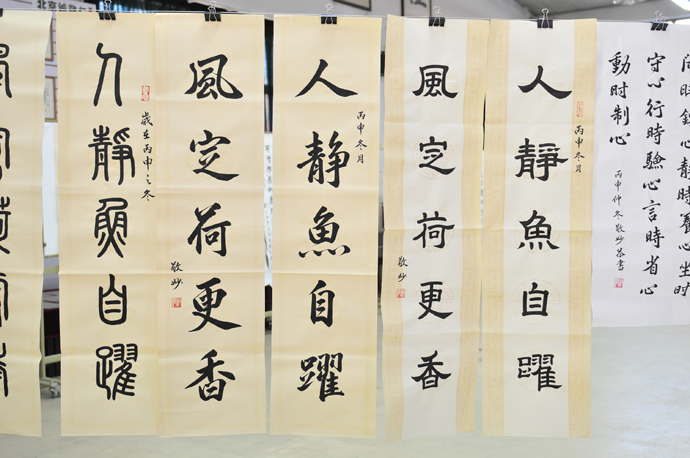 時鍊心靜時養心坐時
守心行時驗心言時省心
動時制心
丙申仲冬敬妙恭書
人靜魚自躍
丙申冬月
風定荷更香
敬妙
人靜魚自躍
丙申冬月
風定荷更香
敬妙
人靜魚自躍
歲在丙申之冬